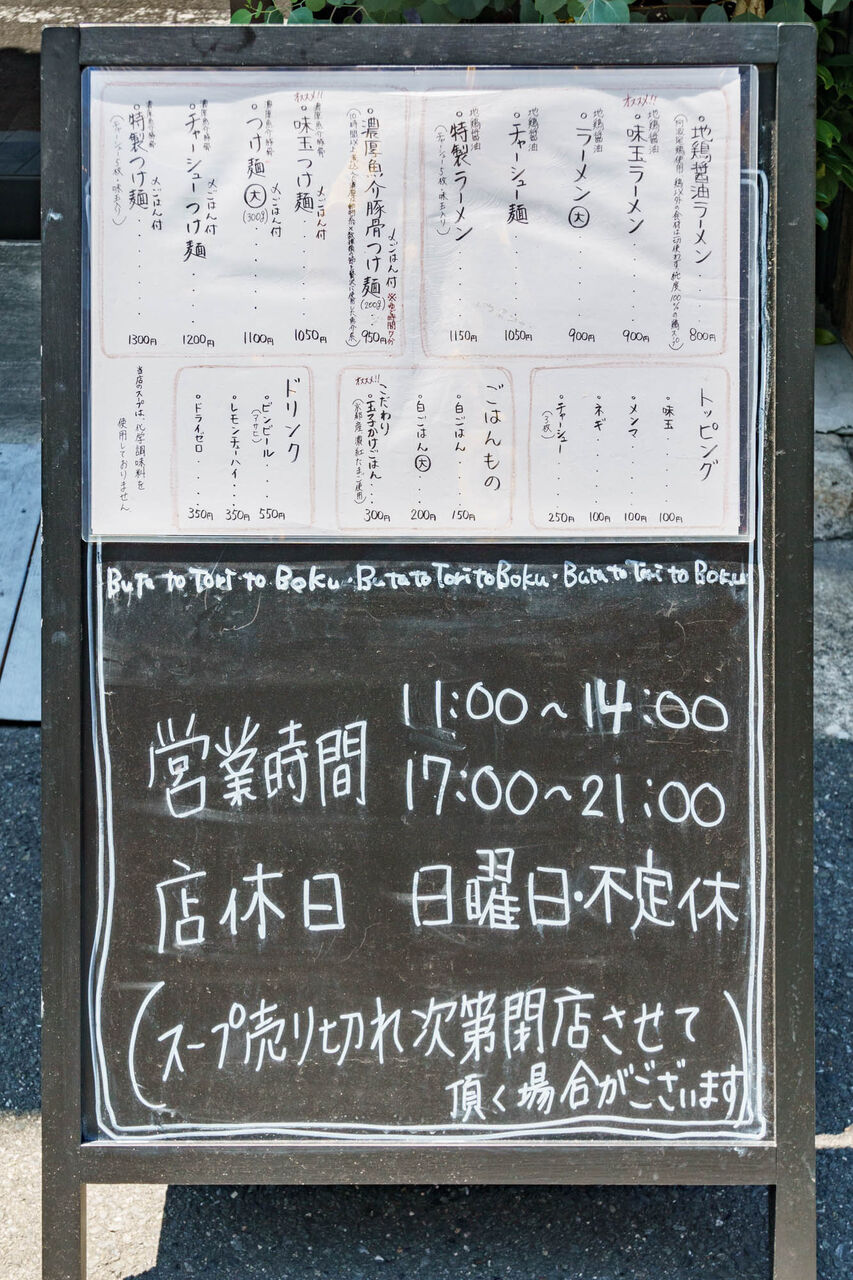 ・地鶏醤油ラーメン・・・800円
オススメ!!
地鶏醤油
・味玉ラーメン・・・900円
地鶏醤油
・ラーメン(大)・・・900円
地鶏醤油
・チャーシュー麺・・・1050円
地鶏醤油
・特製ラーメン・・・1150円
(チャーシュー5枚・味玉入り)
・濃厚魚介豚骨つけ麺(200g)・・950円
〆ごはん付
※ゆで時間7分
オススメ!!
濃厚魚介豚骨
・味玉つけ麺・・・1050円
〆ごはん付
濃厚魚介豚骨
・つけ麺(大)(300g)・・・1100円
〆ごはん付
濃厚魚介豚骨
・チャーシューつけ麺・・・1200円
〆ごはん付
濃厚魚介豚骨
・特製つけ麺・・・1300円
〆ごはん付
(チャーシュー5枚・味玉入り)
トッピング
・味玉・・・100円
・メンマ・・・100円
・ネギ・・・100円
・チャーシュー・・・250円
ごはんもの
・白ごはん・・・150円
・白ごはん(大)・・・200円
オススメ!!
こだわり
・玉子かけごはん・・・300円
(京都産濃紅たまご使用)
ドリンク
・ビンビール・・・550円
(アサヒ)
・レモンチューハイ・・・350円
・ドライゼロ・・・350円
当店のスープは、化学調味料を
使用しておりません。
Buta to Tori to Boku・Buta to Tori to Boku・Buta to Tori to Boku
営業時間 11:00〜14:00
17:00〜21:00
店休日 日曜日・不定休
(スープ売り切れ次第閉店させて
頂く場合がございます)